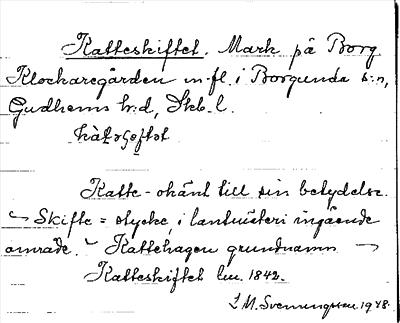 Katteskiftet. Mark på Borg
Klockaregården m.fl. i Borgunda s:n,
Gudhems h:d, Skb. l.
Katte- okänt till sin betydelse.
Skifte = stycke, i lantmäteri ingående
område. Kattehagen grundnamn
Katteskiftet lm. 1842.
I M. Svenungsson 1948.